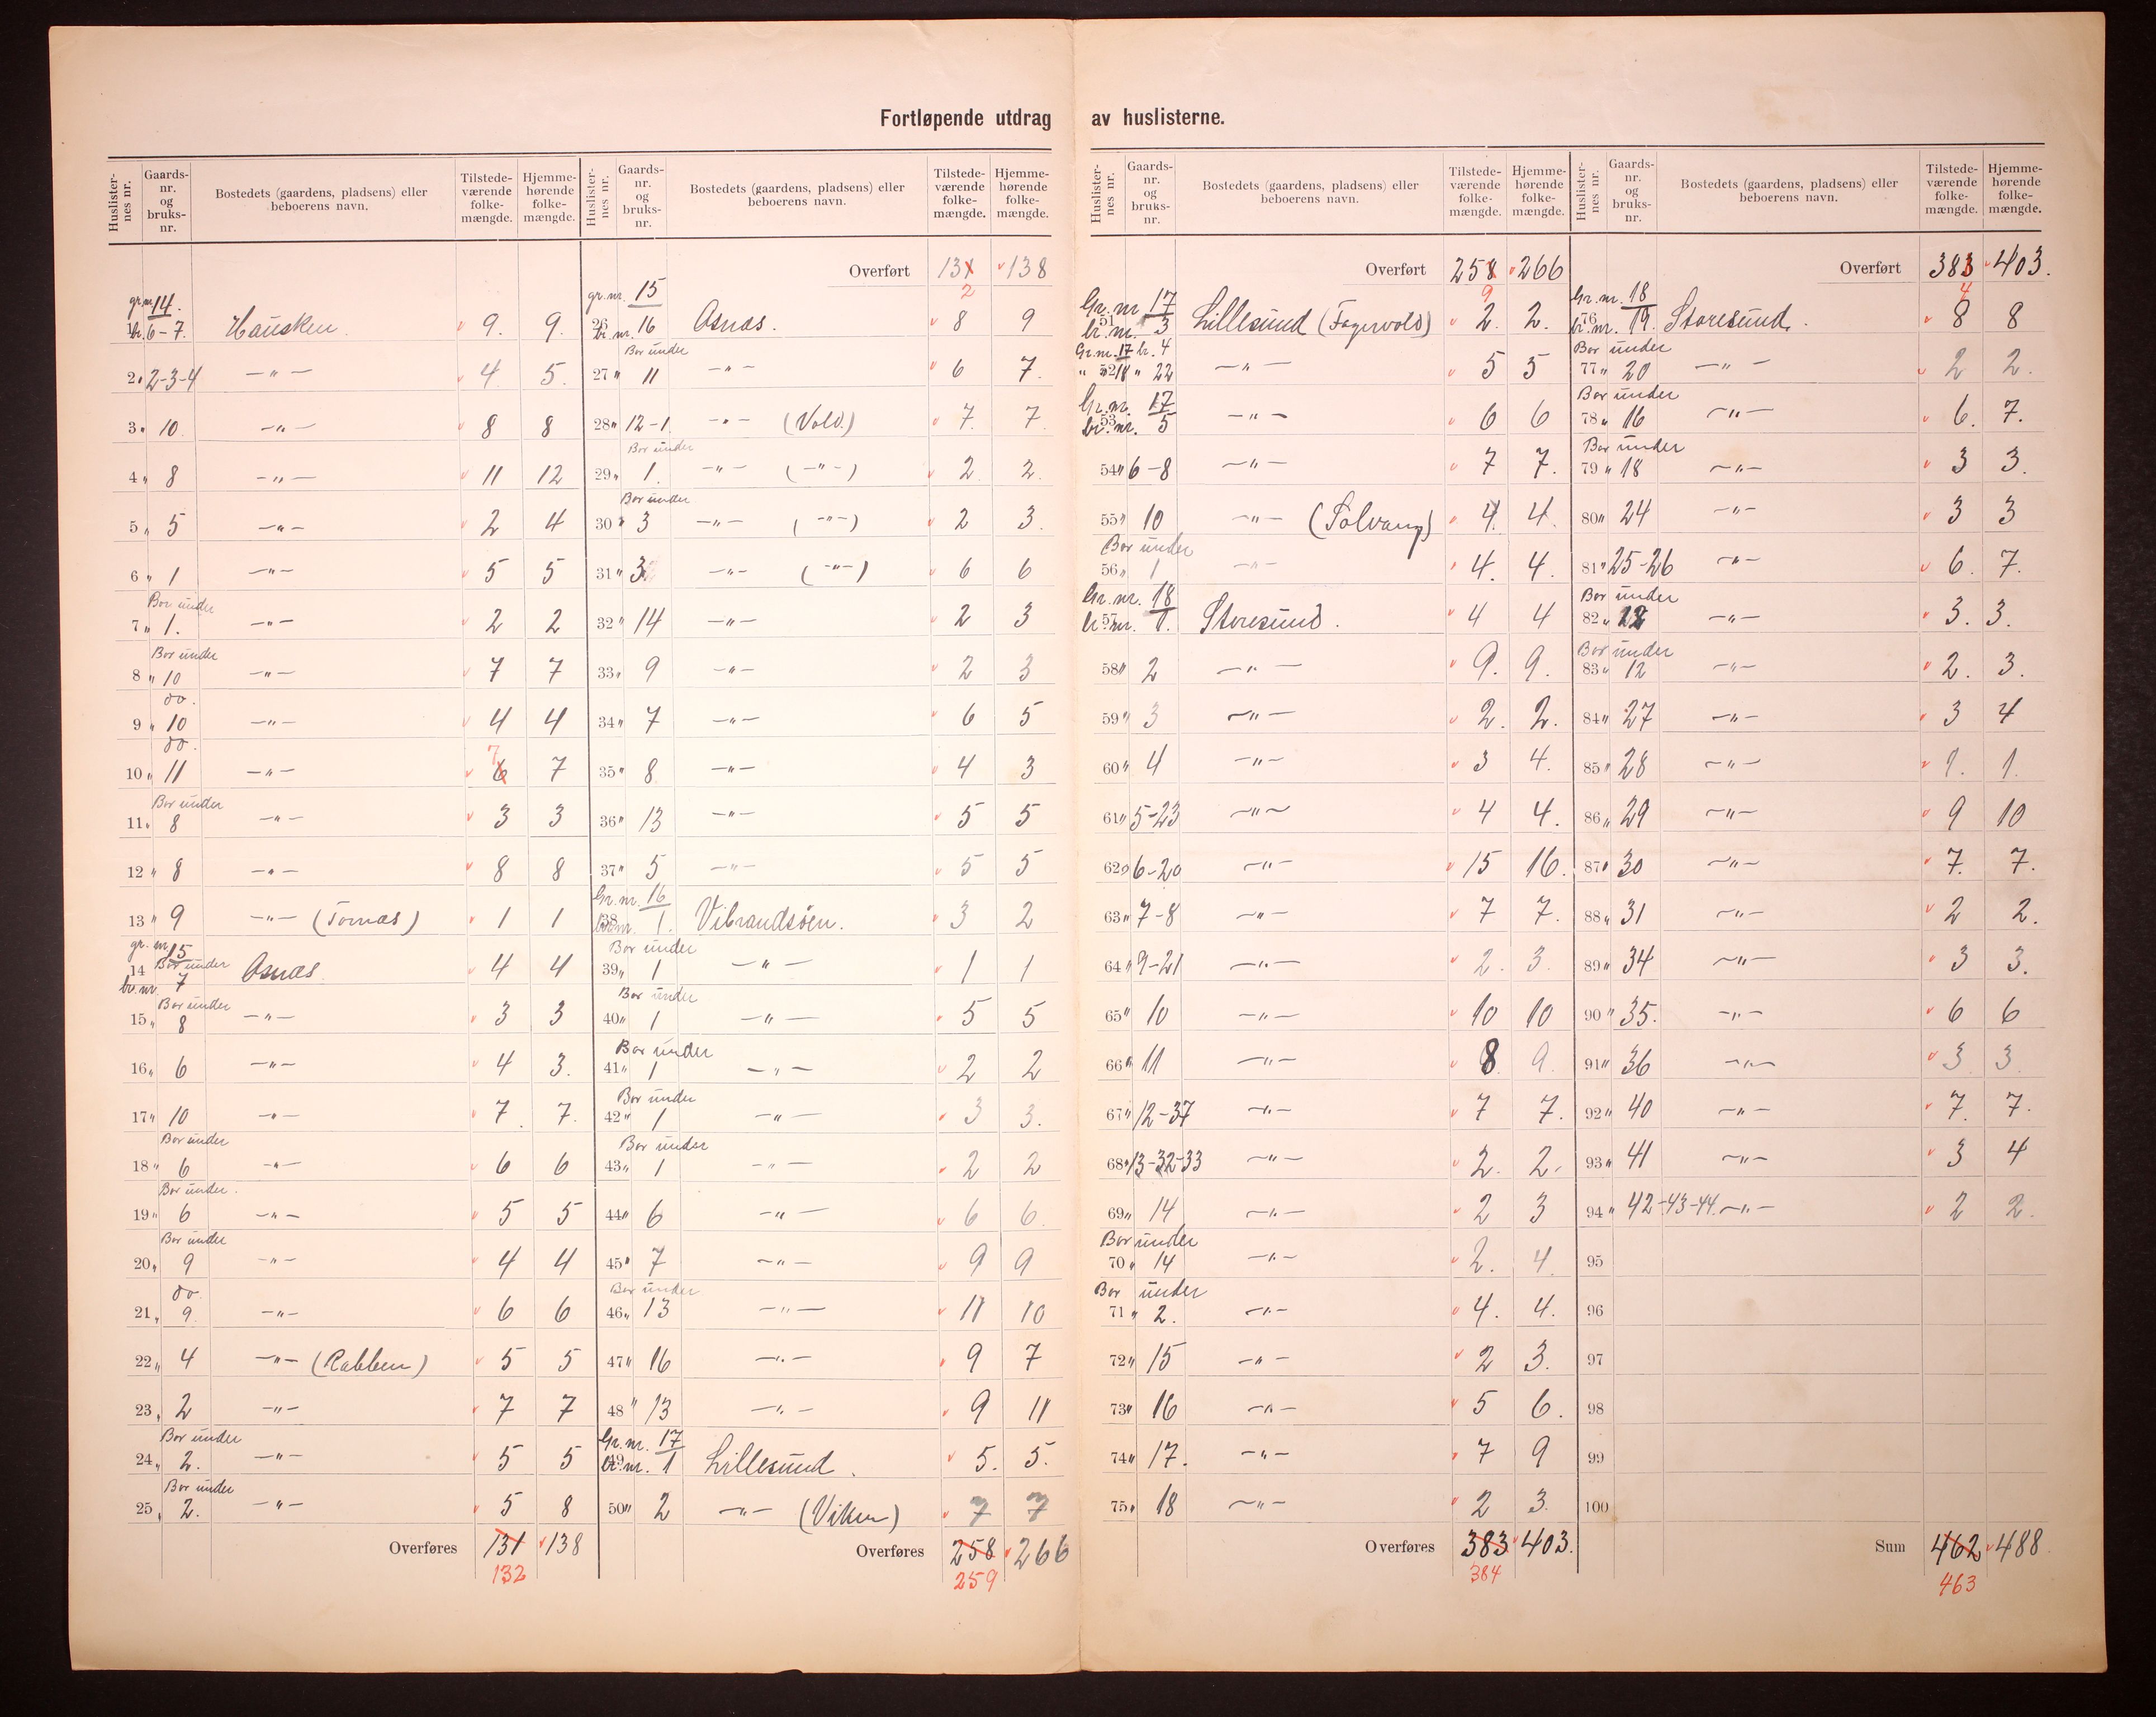 Fortløpende utdrag av huslisterne.
Huslisternes nr. Gaards-nr. og bruks-nr. Bostedets (gaardens, pladsens) eller beboerens navn. Tilstedeværende folkemængde. Hjemmehørende folkemængde.
gr.nr. 14.
1 br. 6-7. Hausken. 9. 9.
2 " 2-3-4 -"- 4 5.
3 " 10 -"- 8 8
4 " 8 -"- 11 12
5 " 5 -"- 2 4
6 " 1 -"- 5 5
Bor under
7 " 1. -"- 2 2
Bor under
8 " 10 -"- 7 7
do.
9 " 10 -"- 4 4
do.
10 " 11 -"- 6 7 7
Bor under
11 " 8 -"- 3 3
12 " 8 -"- 8 8
13 " 9 -"- (Tornæs) 1 1
gr. nr. 15
Bor under
14 br. nr. 7 Asnæs 4 4
Bor under
15 " 8 -"- 3 3
16 " 6 -"- 4 3.
17 " 10 -"- 7. 7.
Bor under
18 " 6 -"- 6 6
Bor under.
19 " 6 -"- 5 5
Bor under
20 " 9 -"- 4 4
do.
21 " 9 -"- 6 6
22 " 4 -"- (Rabben) 5 5
23 " 2 -"- 7 7
Bor under
24 " 2. -"- 5 5
Bor under
25 " 2. -"- 5 8
Overføres 131 138
132
Huslisternes nr. Gaards-nr. og bruks-nr. Bostedets (gaardens, pladsens) eller beboerens navn. Tilstedeværende folkemængde. Hjemmehørende folkemængde.
Overført 131 138
2
gr. nr. 15
26 br. nr. 16 Asnæs. 8 9
Bor under
27 " 11 -"- 6 7.
28 " 12-1. -"- (Vold.) 7. 7
Bor under
29 " 1. -"- (-"-) 2 2.
Bor under
30 " 3 -"- (-"-) 2 3.
31 " 3 -"- (-"-) 6 6
32 " 14 -"- 2 3
33 " 9 -"- 2 3
34 " 7 -"- 6 5
35 " 8 -"- 4 3
36 " 13 -"- 5 5
37 " 5 -"- 5 5
Gr. nr. 16
38 br. nr. 1. Vibrandsöen. 3 2
Bor under
39 " 1 -"- 1 1
Bor under
40 " 1 -"- 5 5
Bor under
41 " 1 -"- 2 2
Bor under
42 " 1 -"- 3 3.
Bor under
43 " 1 -"- 2 2
44 " 6 -"- 6 6.
45 " 7 -"- 9 9
Bor under
46 " 13 -"- 11 10
47 " 16 -"- 9 7
48 " 13 -"- 9 11
Gr. nr. 17
49 br. nr. 1 Lillesund. 5. 5.
50 " 2 -"- (Viken) 7 7
Overføres 258 266
259
Huslisternes nr. Gaards-nr. og bruks-nr. Bostedets (gaardens, pladsens) eller beboerens navn. Tilstedeværende folkemængde. Hjemmehørende folkemængde.
Overført 258 266
9
Gr. nr. 17
51 br. nr. 3 Lillesund (Fagervold) 2. 2.
Gr. nr. 17 br. 4
" 52 18 " 22 -"- 5 5
Gr. nr. 17
53 br. nr. 5 -"- 6 6
54 " 6-8 -"- 7 7.
55 " 10 -"- (Solvang) 4. 4.
Bor under
56 " 1 -"- 4. 4.
Gr. nr. 18
57 br. nr. 1. Storesund. 4 4
58 " 2 -"- 9. 9.
59 " 3 -"- 2. 2.
60 " 4 -"- 3 4.
61 " 5-23 -"- 4 4.
62 " 6-20 -"- 15 16.
63 " 7-8 -"- 7 7.
64 " 9-21 -"- 2. 3.
65 " 10 -"- 10 10
66 " 11 -"- 8 9.
67 " 12-37 -"- 7 7.
68 " 13-32-33 -"- 2. 2.
69 " 14 -"- 2 3
Bor under
70 " 14 -"- 2. 4.
Bor under
71 " 2. -"- 4. 4.
72 " 15 -"- 2 3.
73 " 16 -"- 5 6.
74 " 17. -"- 7 9
75 " 18 -"- 2 3.
Overføres 383 403.
384
Huslisternes nr. Gaards-nr. og bruks-nr. Bostedets (gaardens, pladsens) eller beboerens navn. Tilstedeværende folkemængde. Hjemmehørende folkemængde.
Overført 383 403.
4
Gr. nr. 18
76 br. nr. 19. Storesund. 8 8
Bor under
77 " 20 -"- 2 2.
Bor under
78 " 16 -"- 6. 7.
Bor under
79 " 18 -"- 3 3.
80 " 24 -"- 3 3
81 " 25-26 -"- 6. 7.
Bor under
82 " 12 -"- 3. 3.
Bor under
83 " 12 -"- 2. 3.
84 " 27 -"- 3 4
85 " 28 -"- 1. 1.
86 " 29 -"- 9 10
87 " 30 -"- 7. 7.
88 " 31 -"- 2 2.
89 " 34 -"- 3 3.
90 " 35. -"- 6 6
91 " 36 -"- 3 3
92 " 40 -"- 7. 7.
93 " 41 -"- 3 4
94 " 42-43-44. -"- 2 2.
95
96
97
98
99
100
Sum 462 488.
463